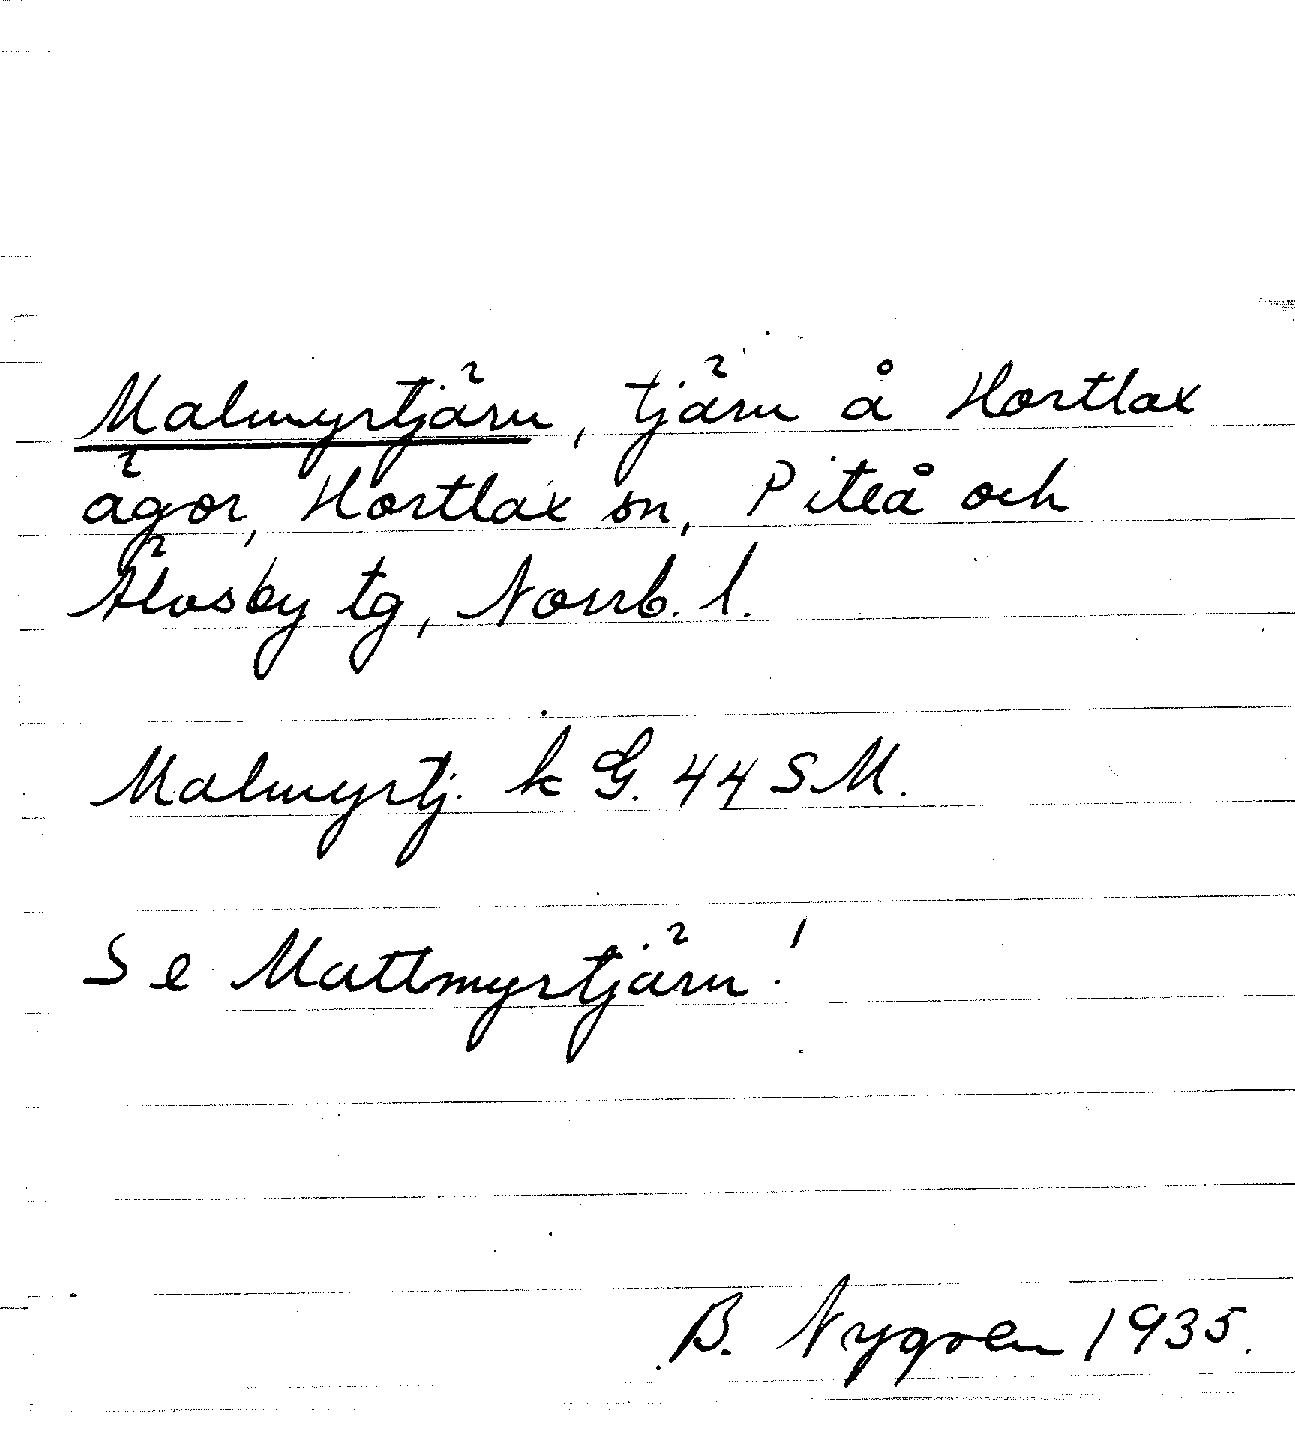 Malmyrtjärn, tjärn å Hortlax
ägor, Hortlax sn, Piteå och
Älvsby tg, Norrb. l.
Malmyrtj. k G. 44 SM.
Se Mattmyrtjärn!
B. Nyqven 1935.